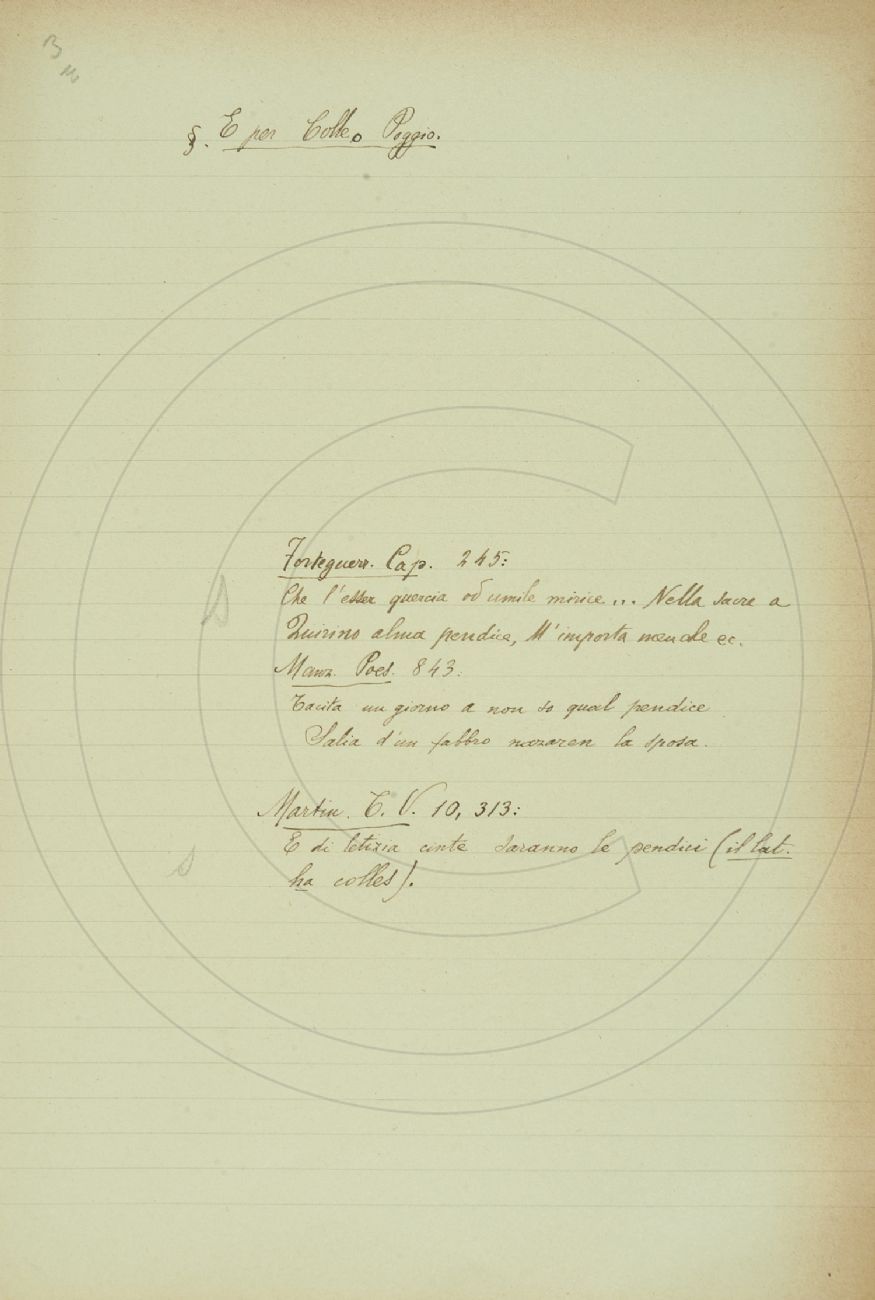 §. E per Colle o Poggio.
Forteguerr. Cap. 245:
Che l'esser quercia od umile mirice... Nella sacra a
Quirino alma pendice, M'importa men che ec.
Manz. Poes. 843.
Tacita un giorno a non so qual pendice
Salia d'un fabbro nazaren la sposa.
Martin. T. V. 10, 313:
E di letizia cinte saranno le pendici (il lat.
ha colles).